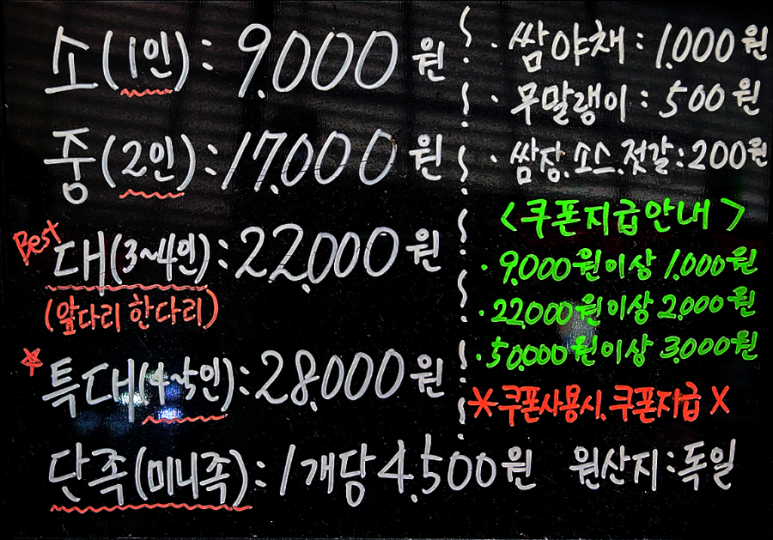 소(1인): 9,000원
중(2인): 17,000원
Best
대(3~4인): 22,000원
(앞다리 한다리)
☆특대(4~5인): 28,000원
단족(미니족): 1개당 4,500원
· 쌈야채: 1,000원
· 무말랭이: 500원
· 쌈장.소스.젓갈: 200원
<쿠폰지급안내>
· 9,000원이상 1,000원
· 22,000원이상 2,000원
· 50,000원이상 3,000원
*쿠폰사용시. 쿠폰지급 X
원산지: 독일